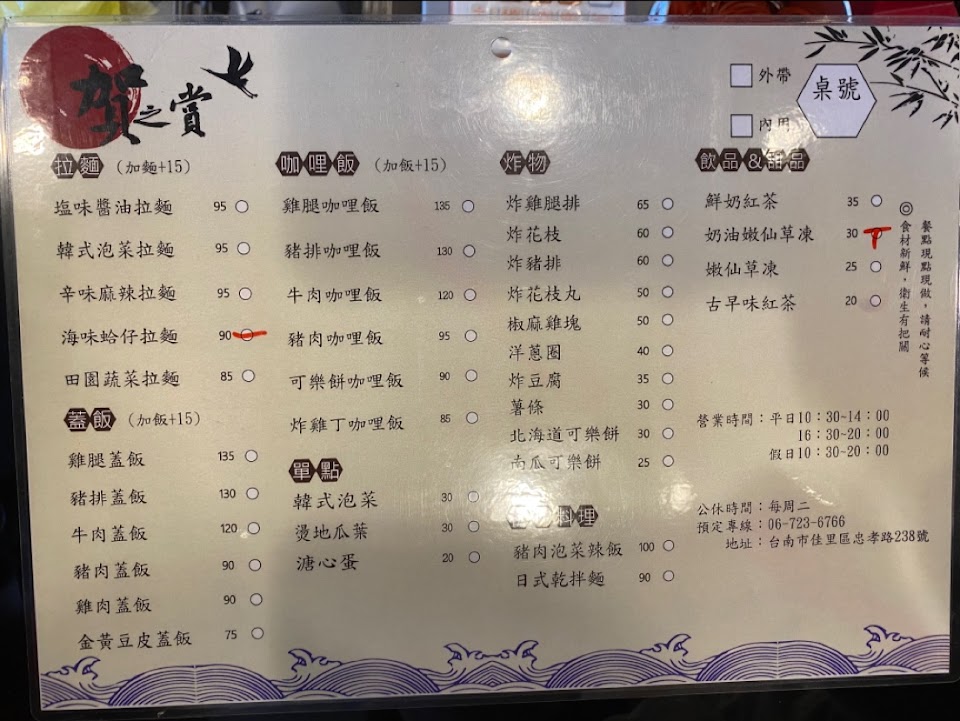 賀之賞
外帶
內用
桌號
拉麵 (加麵+15)
塩味醬油拉麵 95
韓式泡菜拉麵 95
辛味麻辣拉麵 95
海味蛤仔拉麵 90
田園蔬菜拉麵 85
蓋飯 (加飯+15)
雞腿蓋飯 135
豬排蓋飯 130
牛肉蓋飯 120
豬肉蓋飯 90
雞肉蓋飯 90
金黃豆皮蓋飯 75
咖哩飯 (加飯+15)
雞腿咖哩飯 135
豬排咖哩飯 130
牛肉咖哩飯 120
豬肉咖哩飯 95
可樂餅咖哩飯 90
炸雞丁咖哩飯 85
單點
韓式泡菜 30
燙地瓜葉 30
溏心蛋 20
炸物
炸雞腿排 65
炸花枝 60
炸豬排 60
炸花枝丸 50
椒麻雞塊 50
洋蔥圈 40
炸豆腐 35
薯條 30
北海道可樂餅 30
南瓜可樂餅 25
料理
豬肉泡菜辣飯 100
日式乾拌麵 90
飲品&甜品
鮮奶紅茶 35
奶油嫩仙草凍 30
嫩仙草凍 25
古早味紅茶 20
餐點現點現做，請耐心等候
◎食材新鮮，衛生有把關
營業時間：平日10：30~14：00
16：30~20：00
假日10：30~20：00
公休時間：每周二
預定專線：06-723-6766
地址：台南市佳里區忠孝路238號